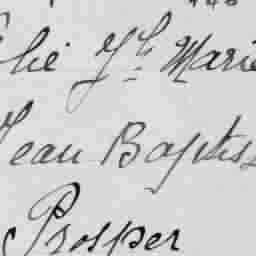 lie Jh Marie
Jean Baptis
Prosper